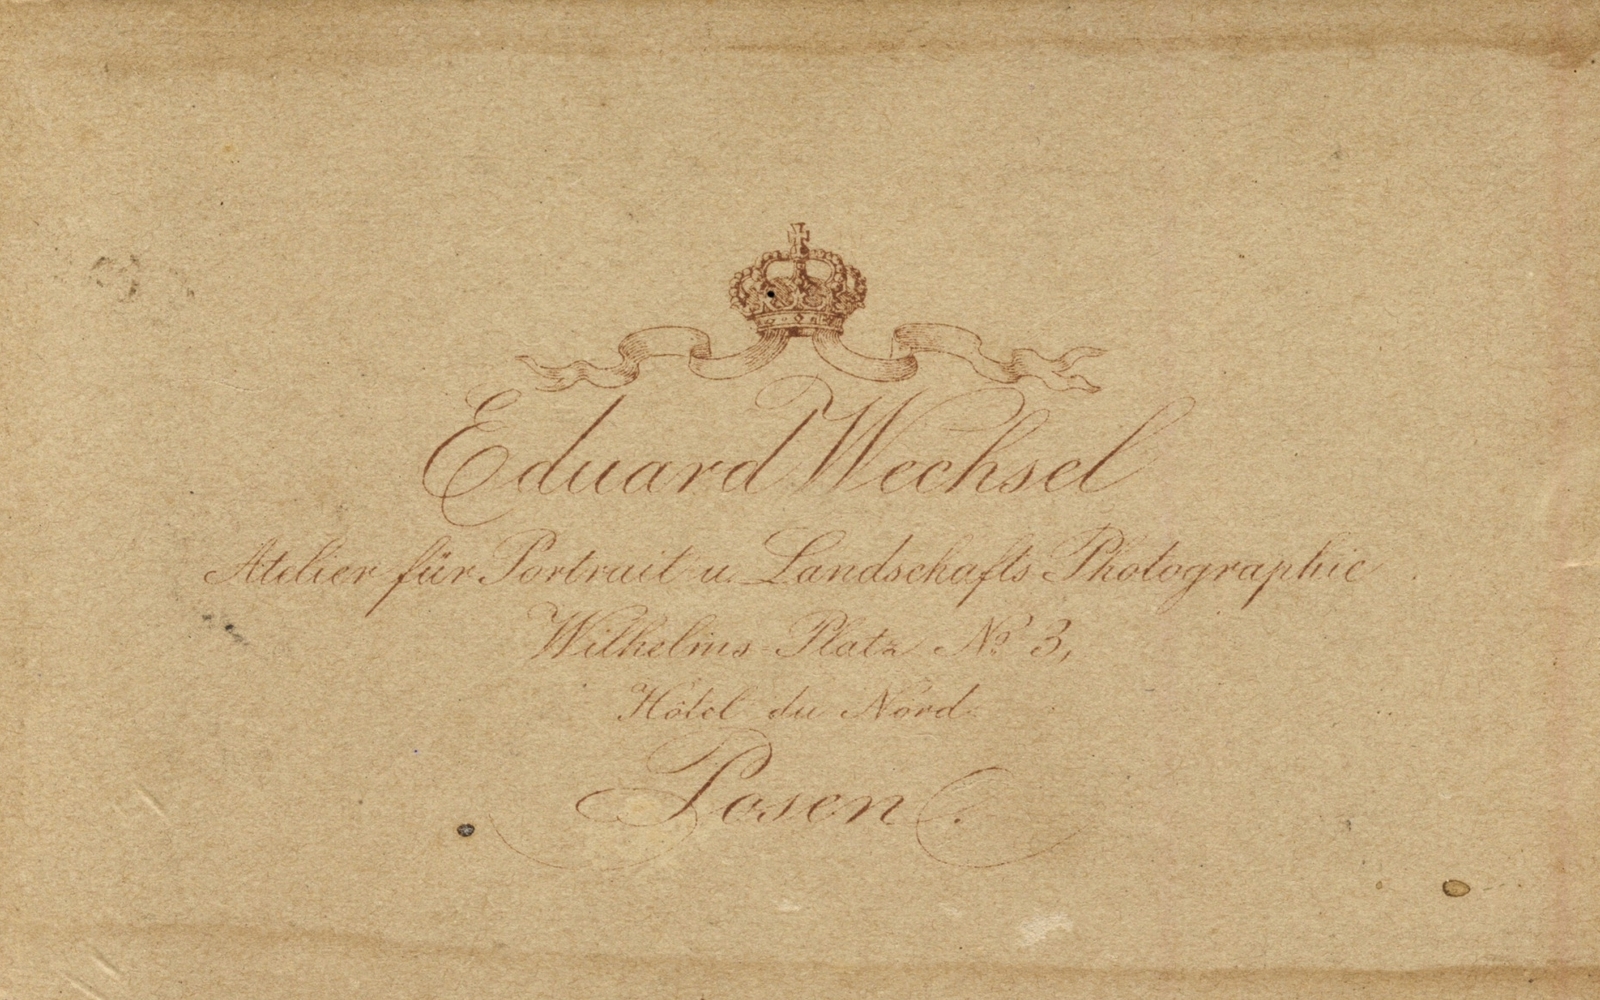 Eduard Wechsel
Atelier für Portrait u. Landschafts Photographie
Wilhelms Platz No 3,
Hôtel du Nord
Posen.